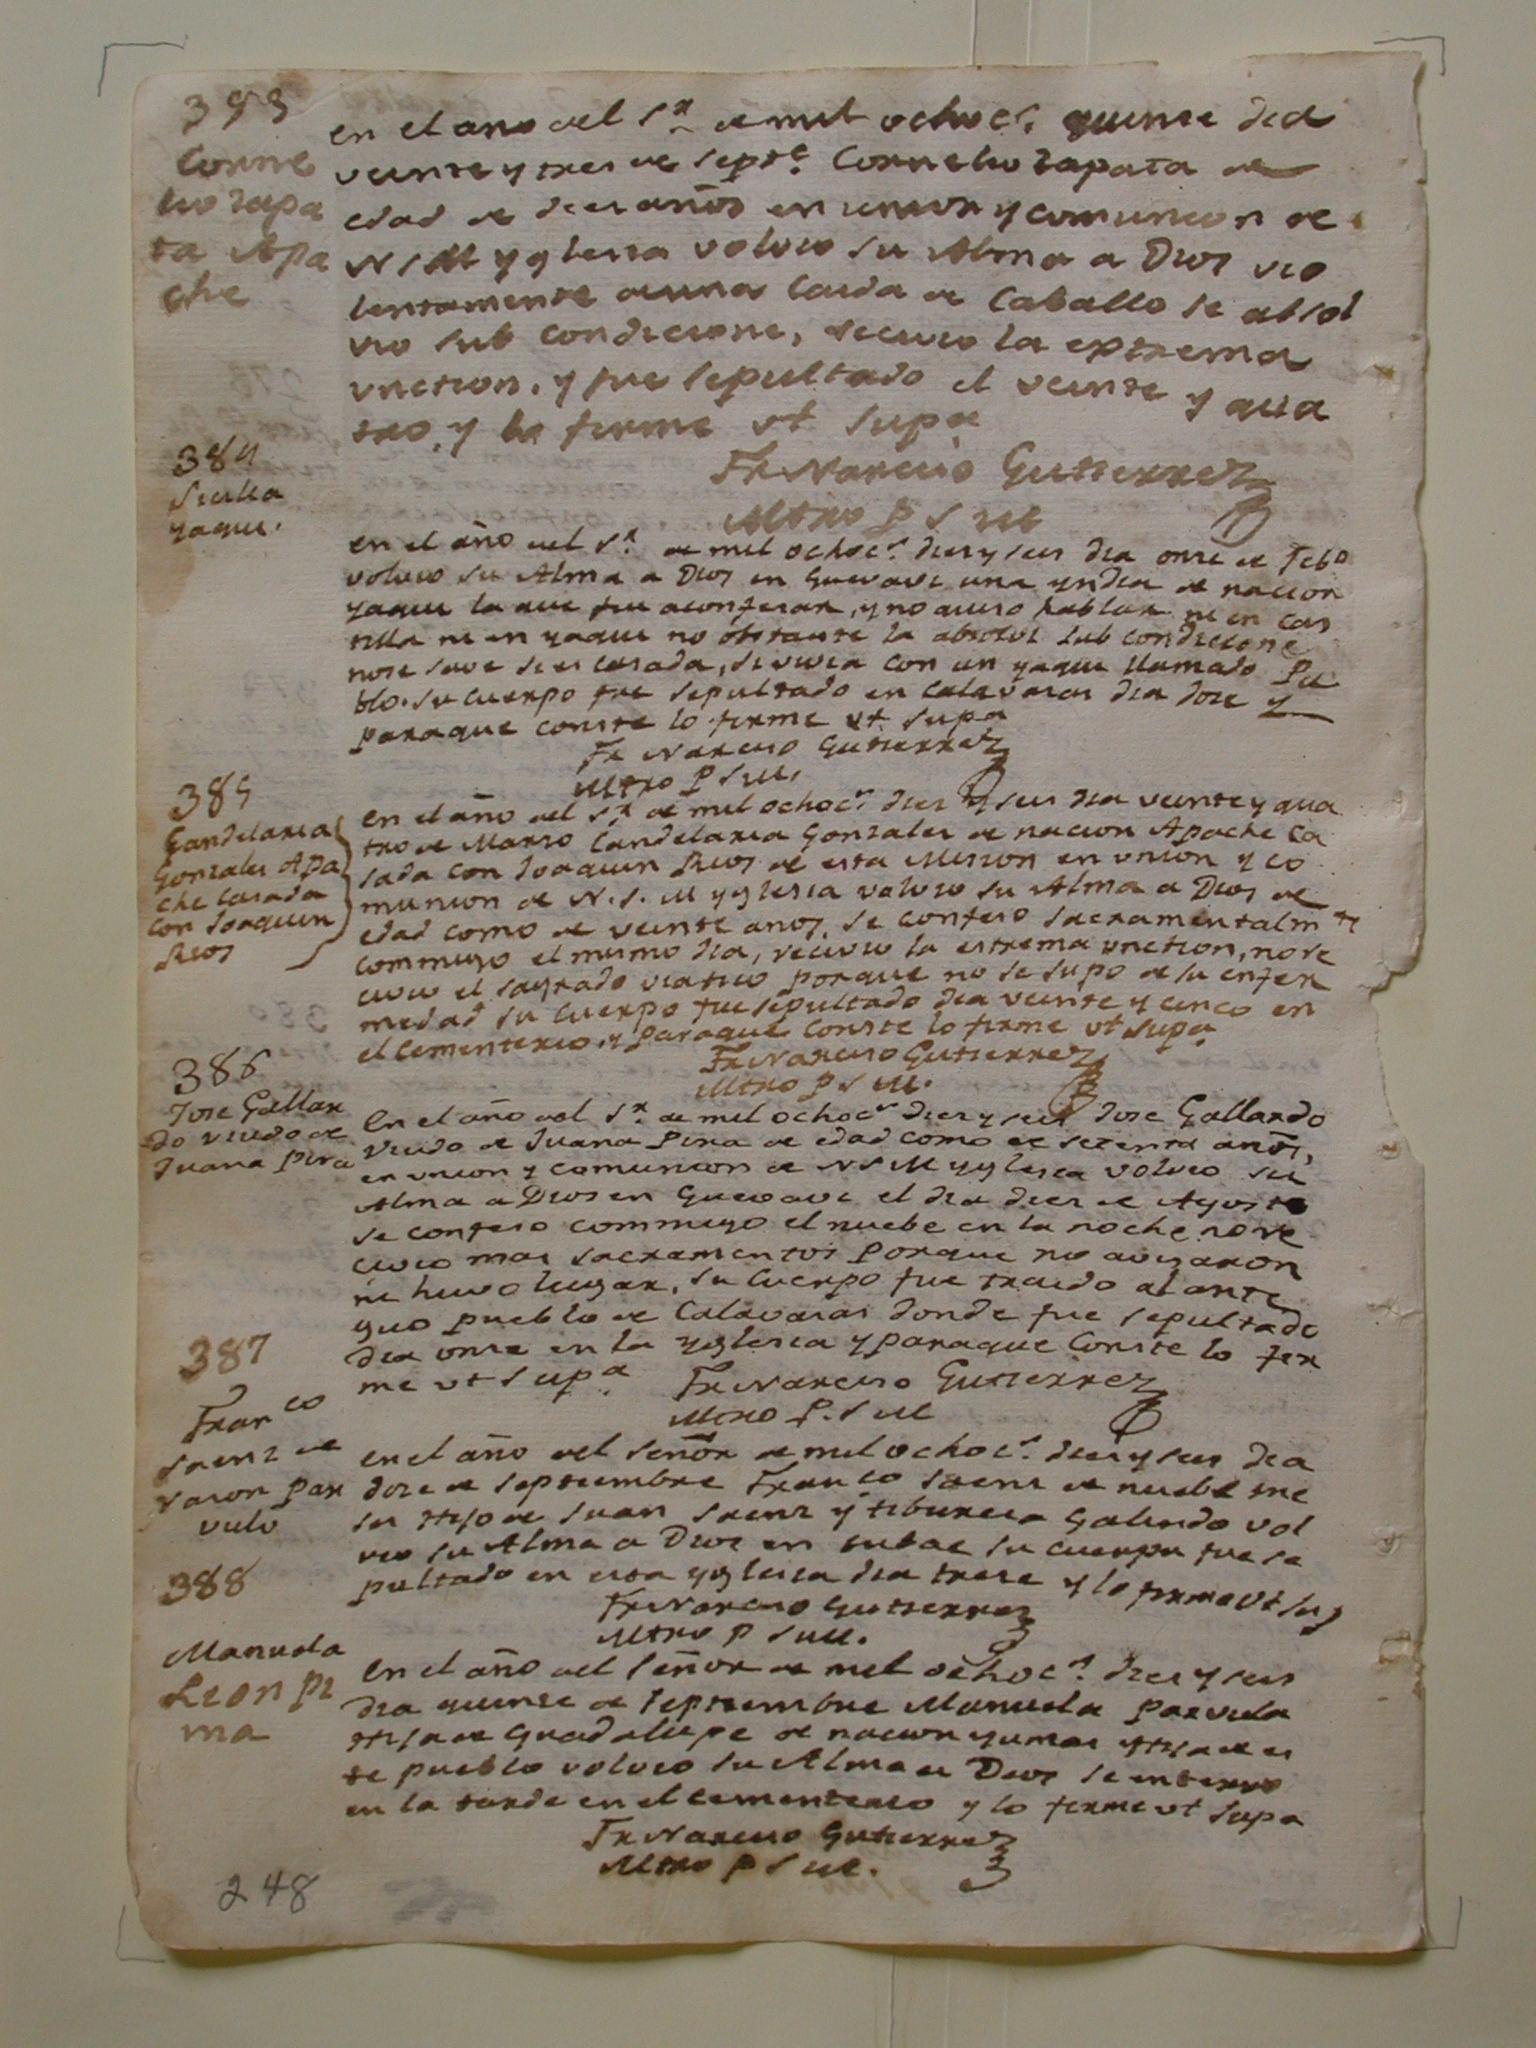 393
Corne
lio Zapa
ta Apa
che
en el año del Sr. de mil ochoc.s quinse dia
veinte y tres de Septe. Cornelio Zapata de
edad de dies años en union y comunion de
N S M Yglesia volvio su Alma a Dios vio
lentamente de una Caida de Caballo se absol
vio sub condicione, recivio la extrema
vnction, y fue sepultado el veinte y qua
tro, y lo firme ut supa
Fr Narciso Gutierrez
Mtro P S M
384
Yaqui.
en el año del Sr. de mil ochoc.s dies y seis dia onse de Febo
volvio su Alma a Dios en Guevavi una yndia de nacion
yaqui la que fui a confesar, y no quiso hablar ni en Cas
tilla ni en yaqui no obstante la absolvi sub condicione
nose save si es casada, si vivia con un yaqui llamado Pa
blo. su cuerpo fue sepultado en Calavasas dia dose y
paraque conste lo firme ut supa
Fr Narciso Gutierrez
Mtro P S M.
385
Candelaria
Gonzales Apa
che Casada
con Joaquin
Rios
en el año del Sr. de mil ochoc.s dies y seis dia veinte y qua
tro de Marzo Candelaria Gonzales de nacion Apache ca
sada con Joaquin Rios de esta Mision en union y co
munion de N. S. M Yglesia volvio su Alma a Dios de
edad como de veinte anos, se confeso sacramentalm te
commugo el mismo dia, recivio la estrema vnction, no re
civio el sagrado viatico porque no se supo de su enfer
medad su Cuerpo fue sepultado dia veinte y cinco en
el cementerio, y paraque Conste lo firme ut supa
Fr Narciso Gutierrez
Mtro P S M.
386
Jose Gallar
do viudo de
Juana Pira
En el año del Sr. de mil ochoc.s dies y seis Jose Gallardo
viudo de Juana Pira de edad como de setenta anos,
en union y comunion de N S M Yglesia volvio su
Alma a Dios en Guevavi el dia dies de Agosto
se confeso commugo el nuebe en la noche no re
civio mas sacramentos porque no avisaron
ni huvo lugar, su Cuerpo fue traido al anti
guo pueblo de Calavasas donde fue sepultado
dia onse en la yglesia y paraque Conste lo fir
me ut supa
Fr Narciso Gutierrez
Mtro P. S M
387
Franco
Saenz de
rason par
vulo
en el año del Señor de mil ochoc.s dies y seis dia
dose de septiembre Franco Saenz de nuebe me
ses Hijo de Juan Saenz y tiburcia Galindo vol
vio su Alma a Dios en tubac su cuerpo fue se
pultado en esta yglesia dia trese y lo firme ut su
Fr Narciso Gutierrez
Mtro P S M.
388
Manuela
Leon Pi
ma
En el año del Señor de mil ochoc.s dies y seis
dia quinse de septiembre Manuela parvula
Hija de Guadalupe de nacion yumas y Hija de es
te pueblo volvio su Alma a Dios se enterro
en la tarde en el cementerio y lo firme ut supa
Fr Narciso Gutierrez
Mtro P S M.
248